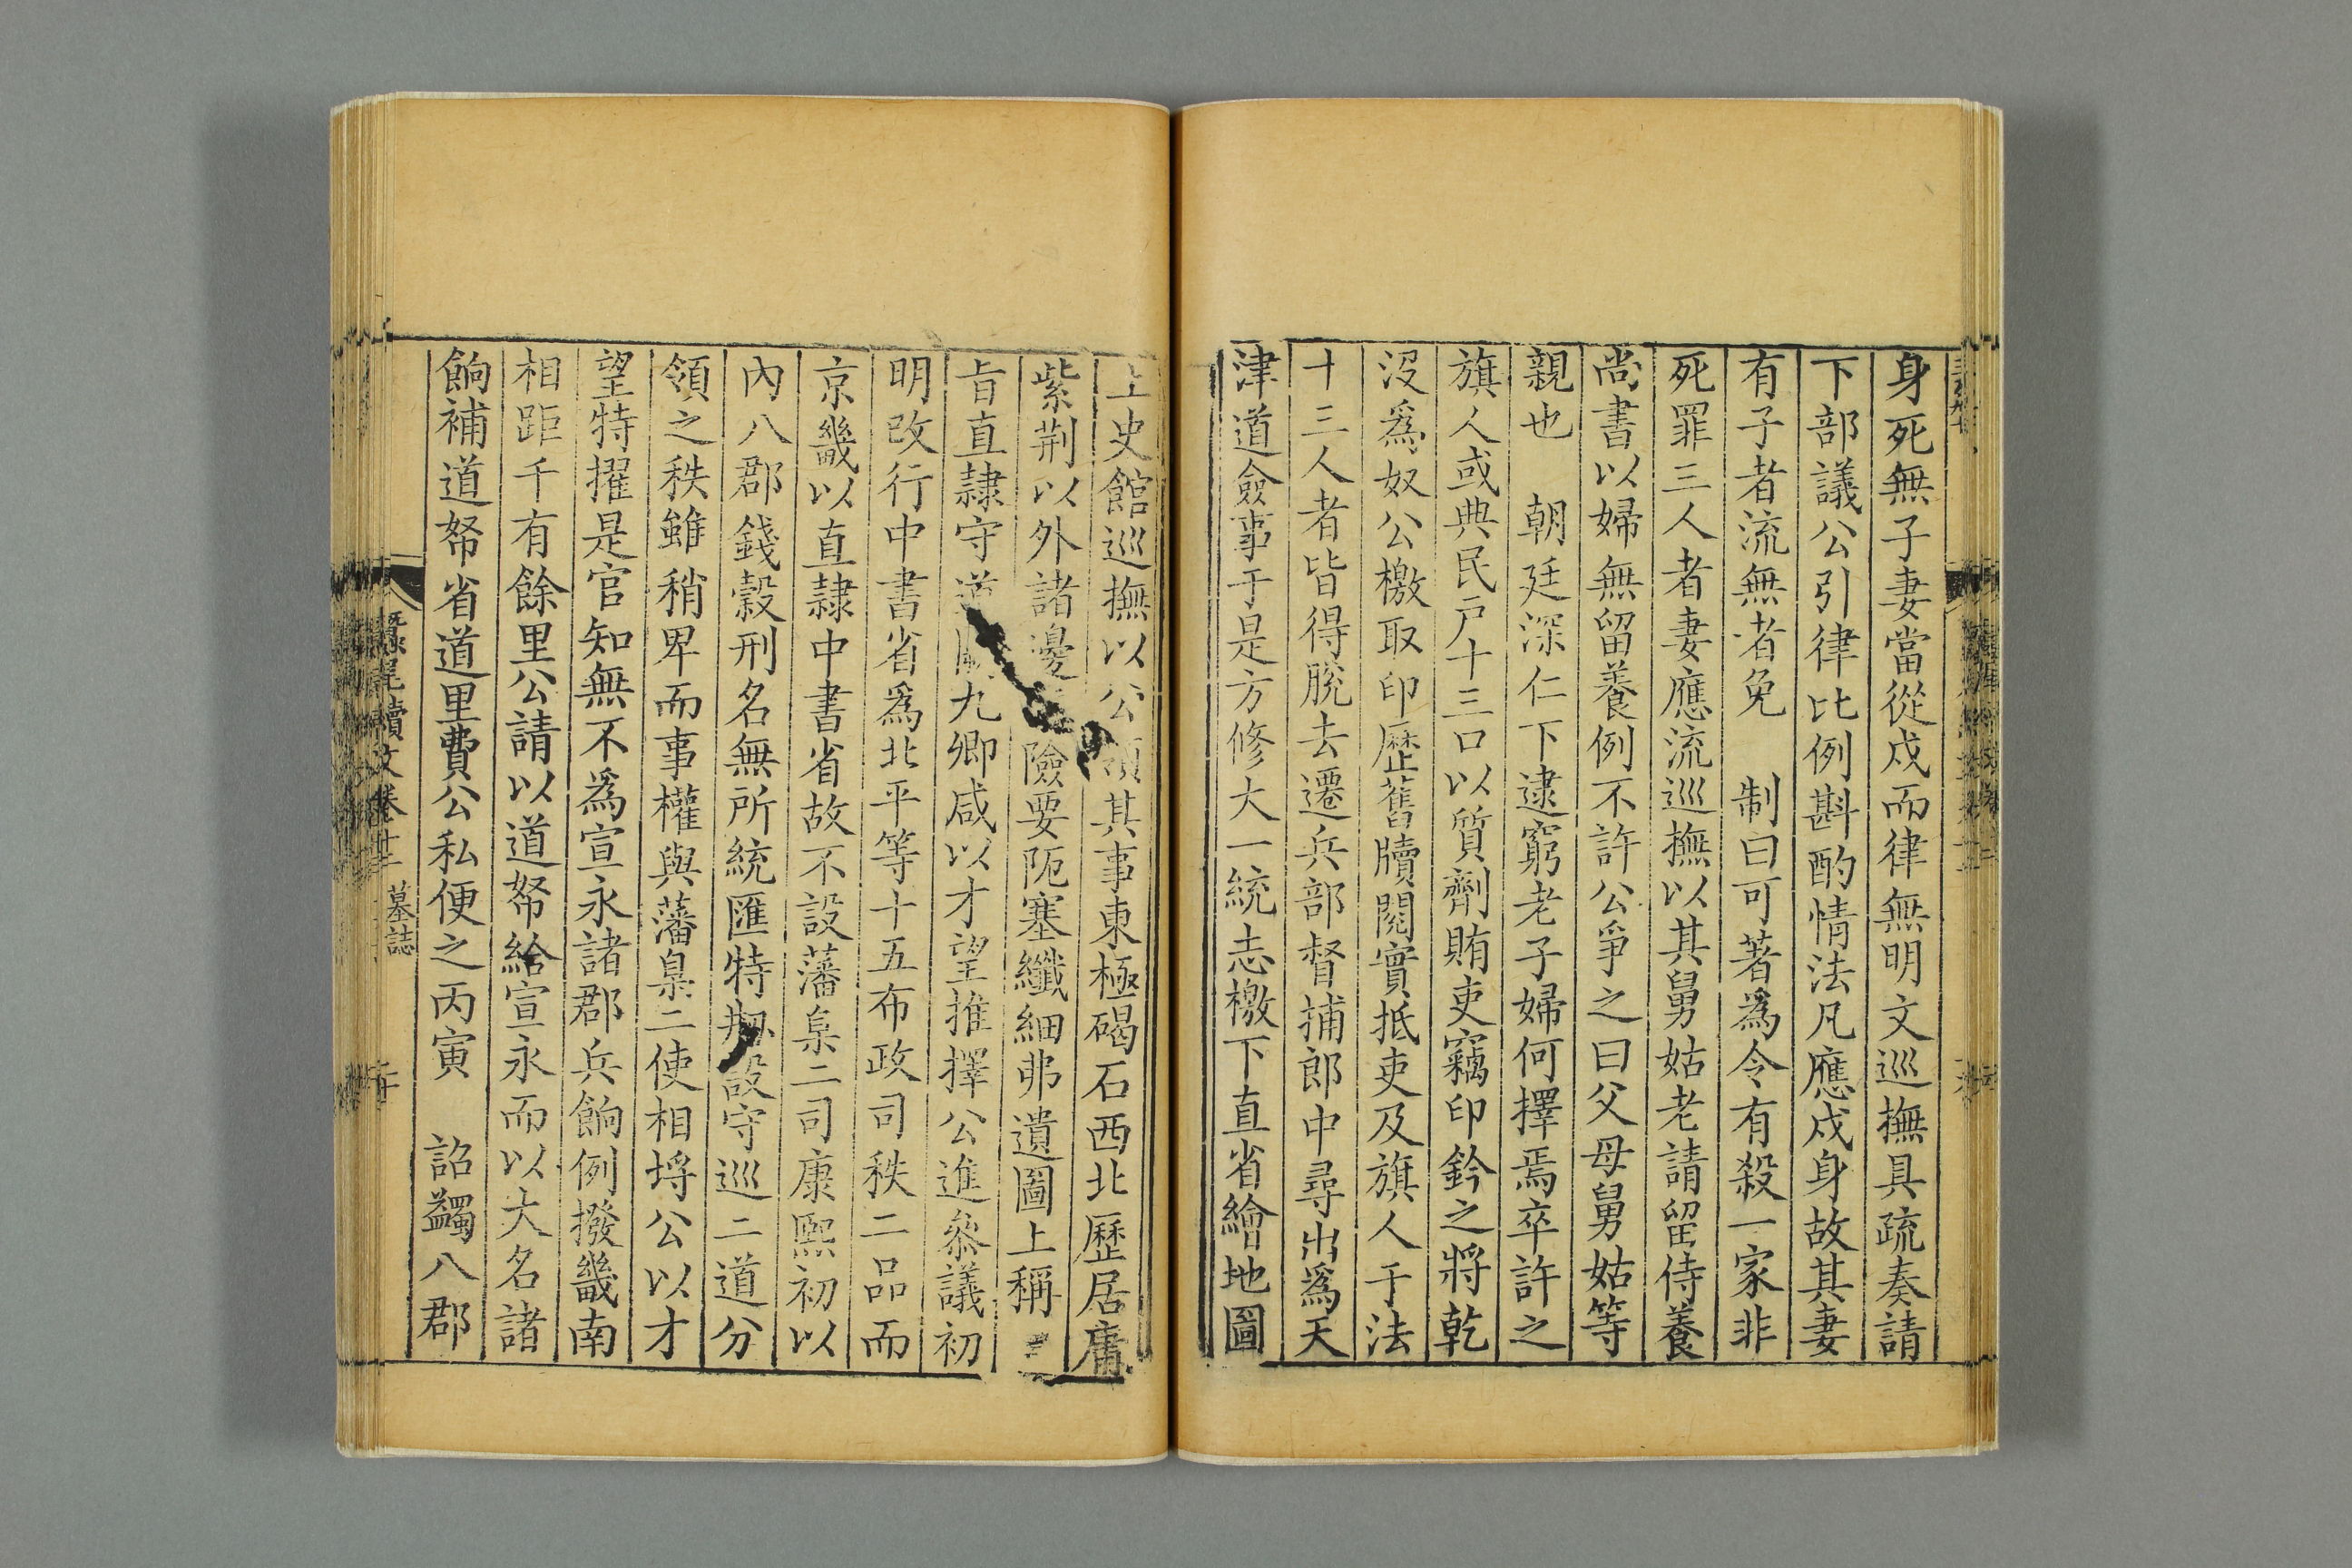 身死無子妻當從戍而律無明文巡撫具疏奏請
下部議公引律比例斟酌情法凡應戍身故其妻
有子者流無者免　制曰可著爲令有殺一家非
死罪三人者妻應流巡撫以其舅姑老請留侍養
尚書以婦無留養例不許公爭之曰父母舅姑等
親也　朝廷深仁下逮窮老子婦何擇焉卒許之
旗人或典民戶十三口以質劑賄吏竊印鈐之將乾
沒爲奴公檄取印歷舊牘閱實抵吏及旗人于法
十三人者皆得脫去遷兵部督捕郎中尋出爲天
津道僉事于是方修大一統志檄下直省繪地圖
上史館巡撫以公領其事東極碣石西北歷居庸
紫荆以外諸邊險要阨塞纖細弗遺圖上稱
旨直隸守道闕九卿咸以才望推擇公進叅議初
明改行中書省爲北平等十五布政司秩二品而
京畿以直隸中書省故不設藩臬二司康熙初以
內八郡錢穀刑名無所統匯特剏設守巡二道分
領之秩雖稍卑而事權與藩臬二使相埒公以才
望特擢是官知無不爲宣永諸郡兵餉例撥畿南
相距千有餘里公請以道帑給宣永而以大名諸
餉補道帑省道里費公私便之丙寅　詔蠲八郡
蠶尾續文卷
墓誌